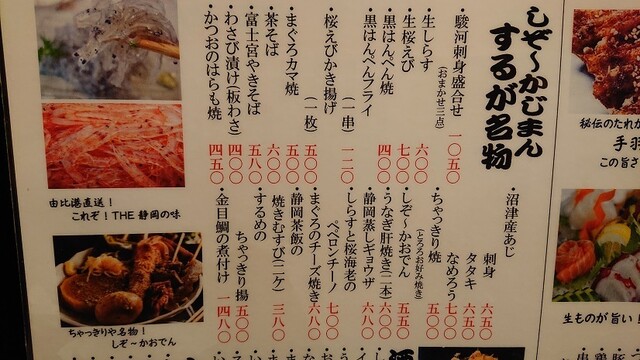 しぞ〜かじまん
するが名物
・駿河刺身盛合せ
(おまかせ三点) 一〇五〇
・生しらす 六〇〇
・生桜えび 七〇〇
・黒はんぺん焼 四〇〇
・黒はんぺんフライ
(一串) 一二〇
・桜えびかき揚げ
(一枚) 五〇〇
・まぐろカマ焼 五〇〇
・茶そば 六〇〇
・富士宮やきそば 五八〇
・わさび漬け(板わさ) 四〇〇
・かつおのはらも焼 四五〇
・沼津産あじ
刺身 六五〇
タタキ 六五〇
なめろう 七〇〇
・ちゃっきり焼
(とろろお好み焼き) 五〇〇
・しぞ〜かおでん 五五〇
・うなぎ肝焼き(二本) 六〇〇
・静岡蒸しギョウザ 六八〇
・しらすと桜海老の
ペペロンチーノ 七〇〇
・まぐろのチーズ焼き 六八〇
・静岡茶飯の
焼きむすび(二ケ) 三八〇
・するめの
ちゃっきり揚 五〇〇
・金目鯛の煮付け 一四八〇
由比港直送!
これぞ!THE 静岡の味
ちゃっきりや名物!
しぞ〜かおでん
秘伝のたれが
手羽
この旨さ
生ものが旨い!